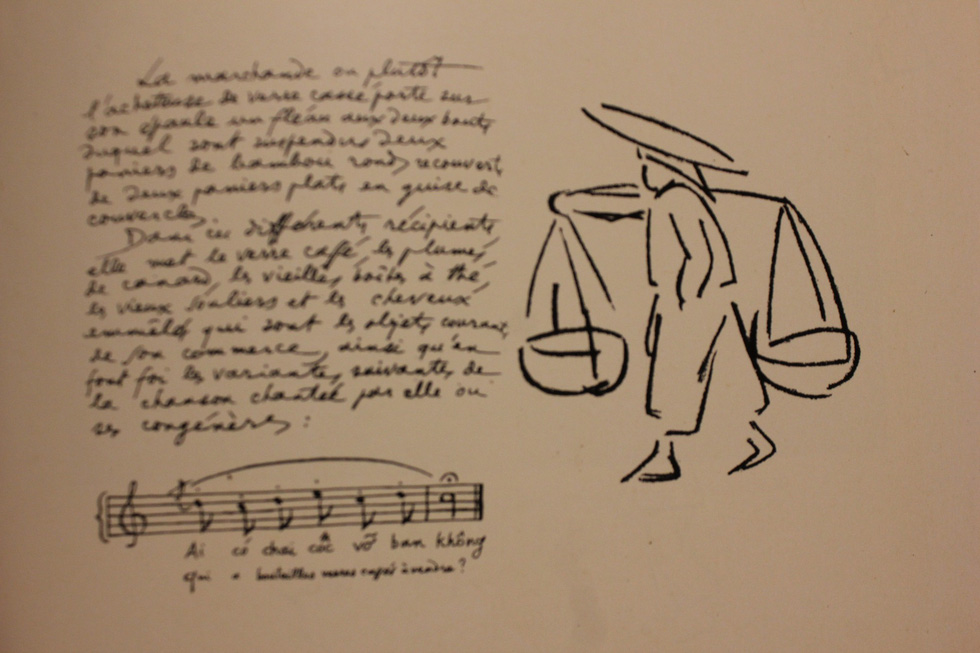 La marchande ou plutôt
l'acheteuse de verre cassé porte sur
son épaule un fléau aux deux bouts
duquel sont suspendus deux
paniers de bambou ronds recouverts
de deux paniers plats en guise de
couvercles.
Dans ces différents récipients
elle met le verre cassé, les plumes
de canard, les vieilles boîtes à thé,
les vieux souliers et les cheveux
emmêlés qui sont les objets courants
de son commerce, ainsi qu'en
font foi les variantes suivantes de
la chanson chantée par elle ou
ses congénères :
Ai có chai cốc vỡ bán không
Qui a bouteilles verres cassés à vendre ?